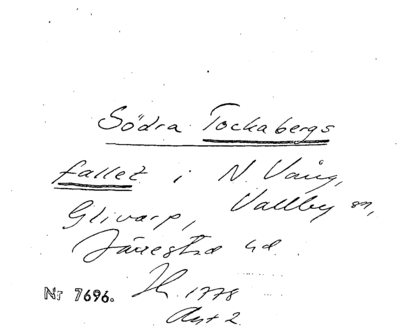 Södra Tockabergs
fallet i N. Vång,
Glivarp, Vallby sn,
Järrestad hd.
1778
Nr 7696.
Avst 2.